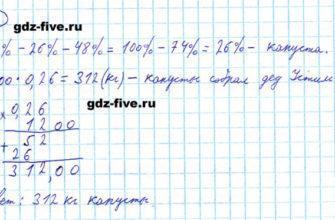 gdz-five.ru
% - 26% - 48% = 100% - 74% = 26% - капуста.
00 · 0,26 = 312 (кг) - капусты собрал дед
gdz-five.ru
× 0,26
1200
+ 52
26
312,00
gdz-five.ru
вет: 312 кг капусты